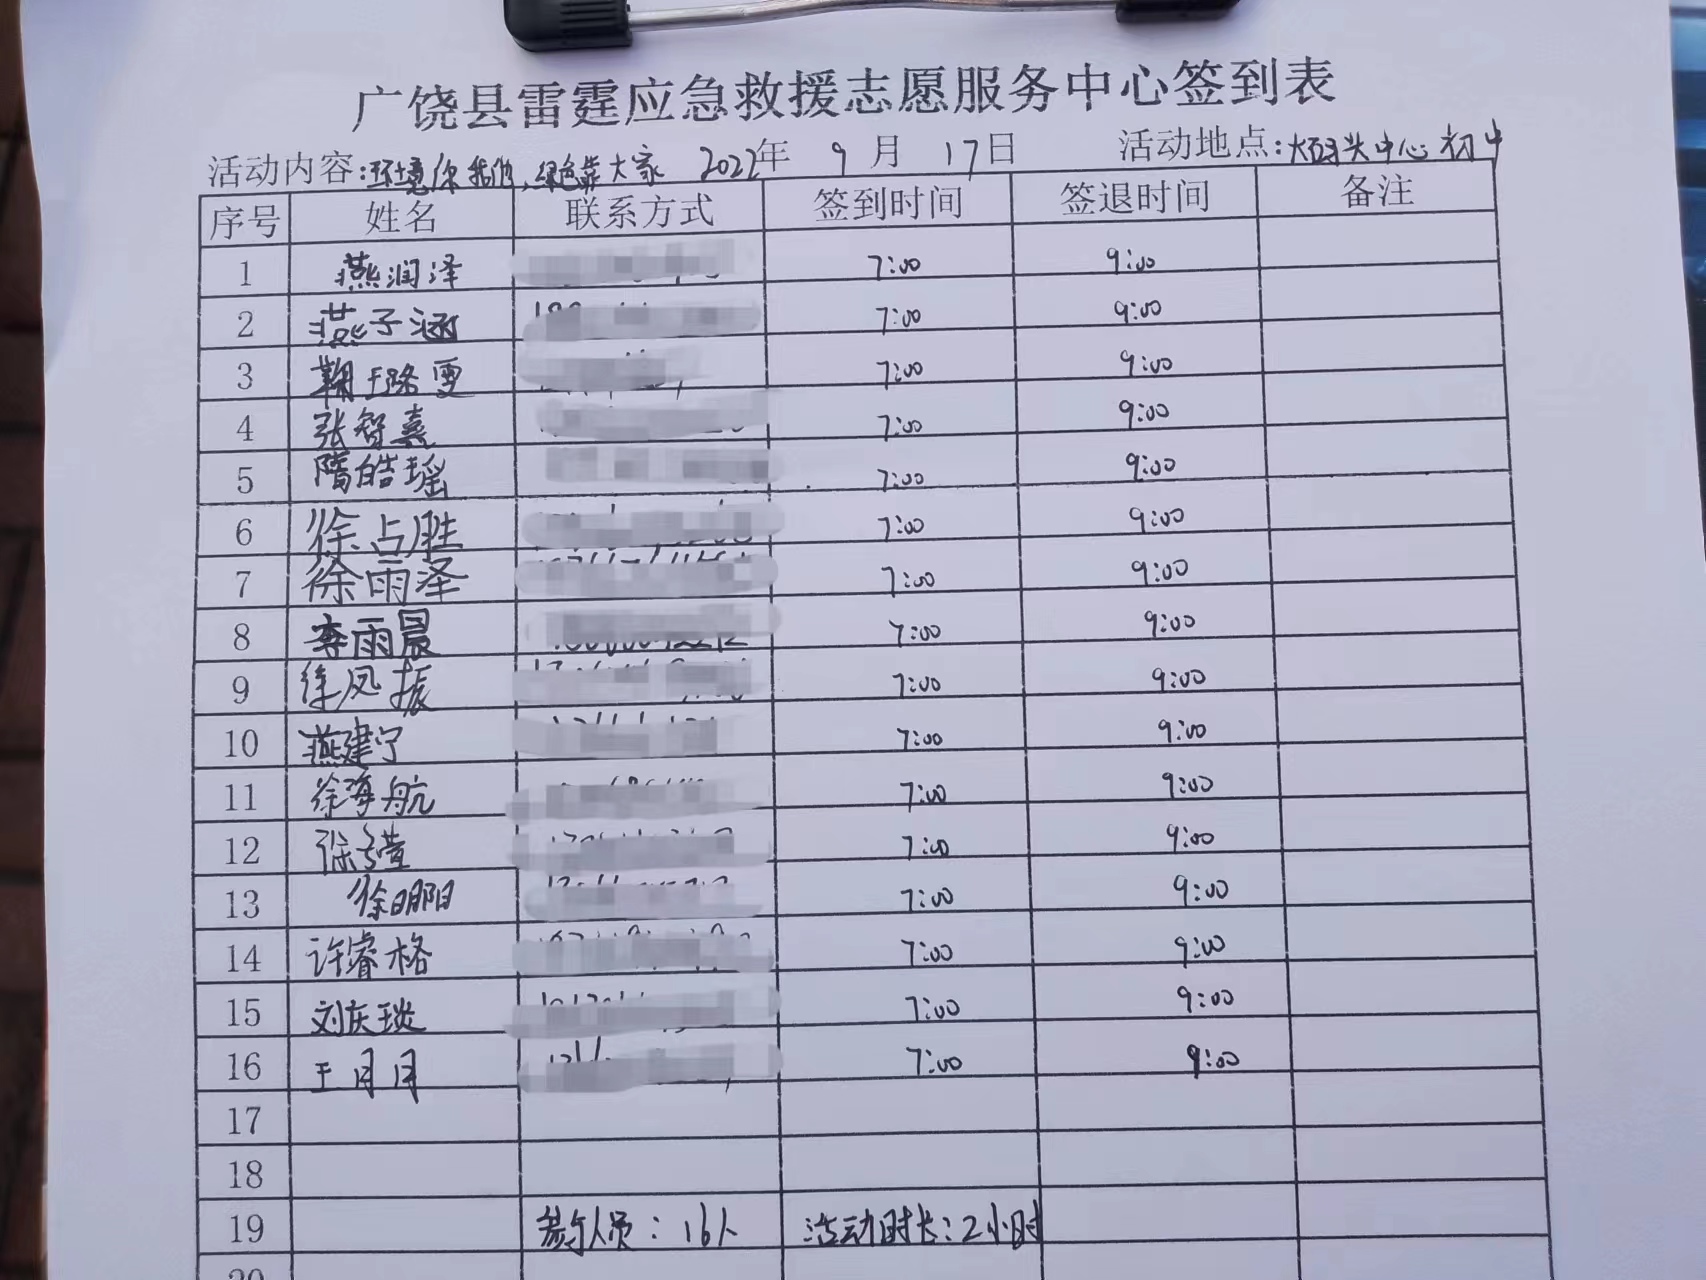 广饶县雷霆应急救援志愿服务中心签到表
活动内容:环境你我他,绿色靠大家 2022年 9月 17日 活动地点:大码头中心初中
序号 姓名 联系方式 签到时间 签退时间 备注
1 燕润泽 7:00 9:00
2 燕子涵 7:00 9:00
3 雪 7:00 9:00
4 张智熹 7:00 9:00
5 隋皓瑶 7:00 9:00
6 徐占胜 7:00 9:00
7 徐雨泽 7:00 9:00
8 李雨晨 7:00 9:00
9 徐凤振 7:00 9:00
10 燕建宁 7:00 9:00
11 徐海航 7:00 9:00
12 7:00 9:00
13 徐明阳 7:00 9:00
14 许睿格 7:00 9:00
15 刘庆琰 7:00 9:00
16 王月月 7:00 9:00
17
18
19 参与人员:16人 活动时长:2小时
20